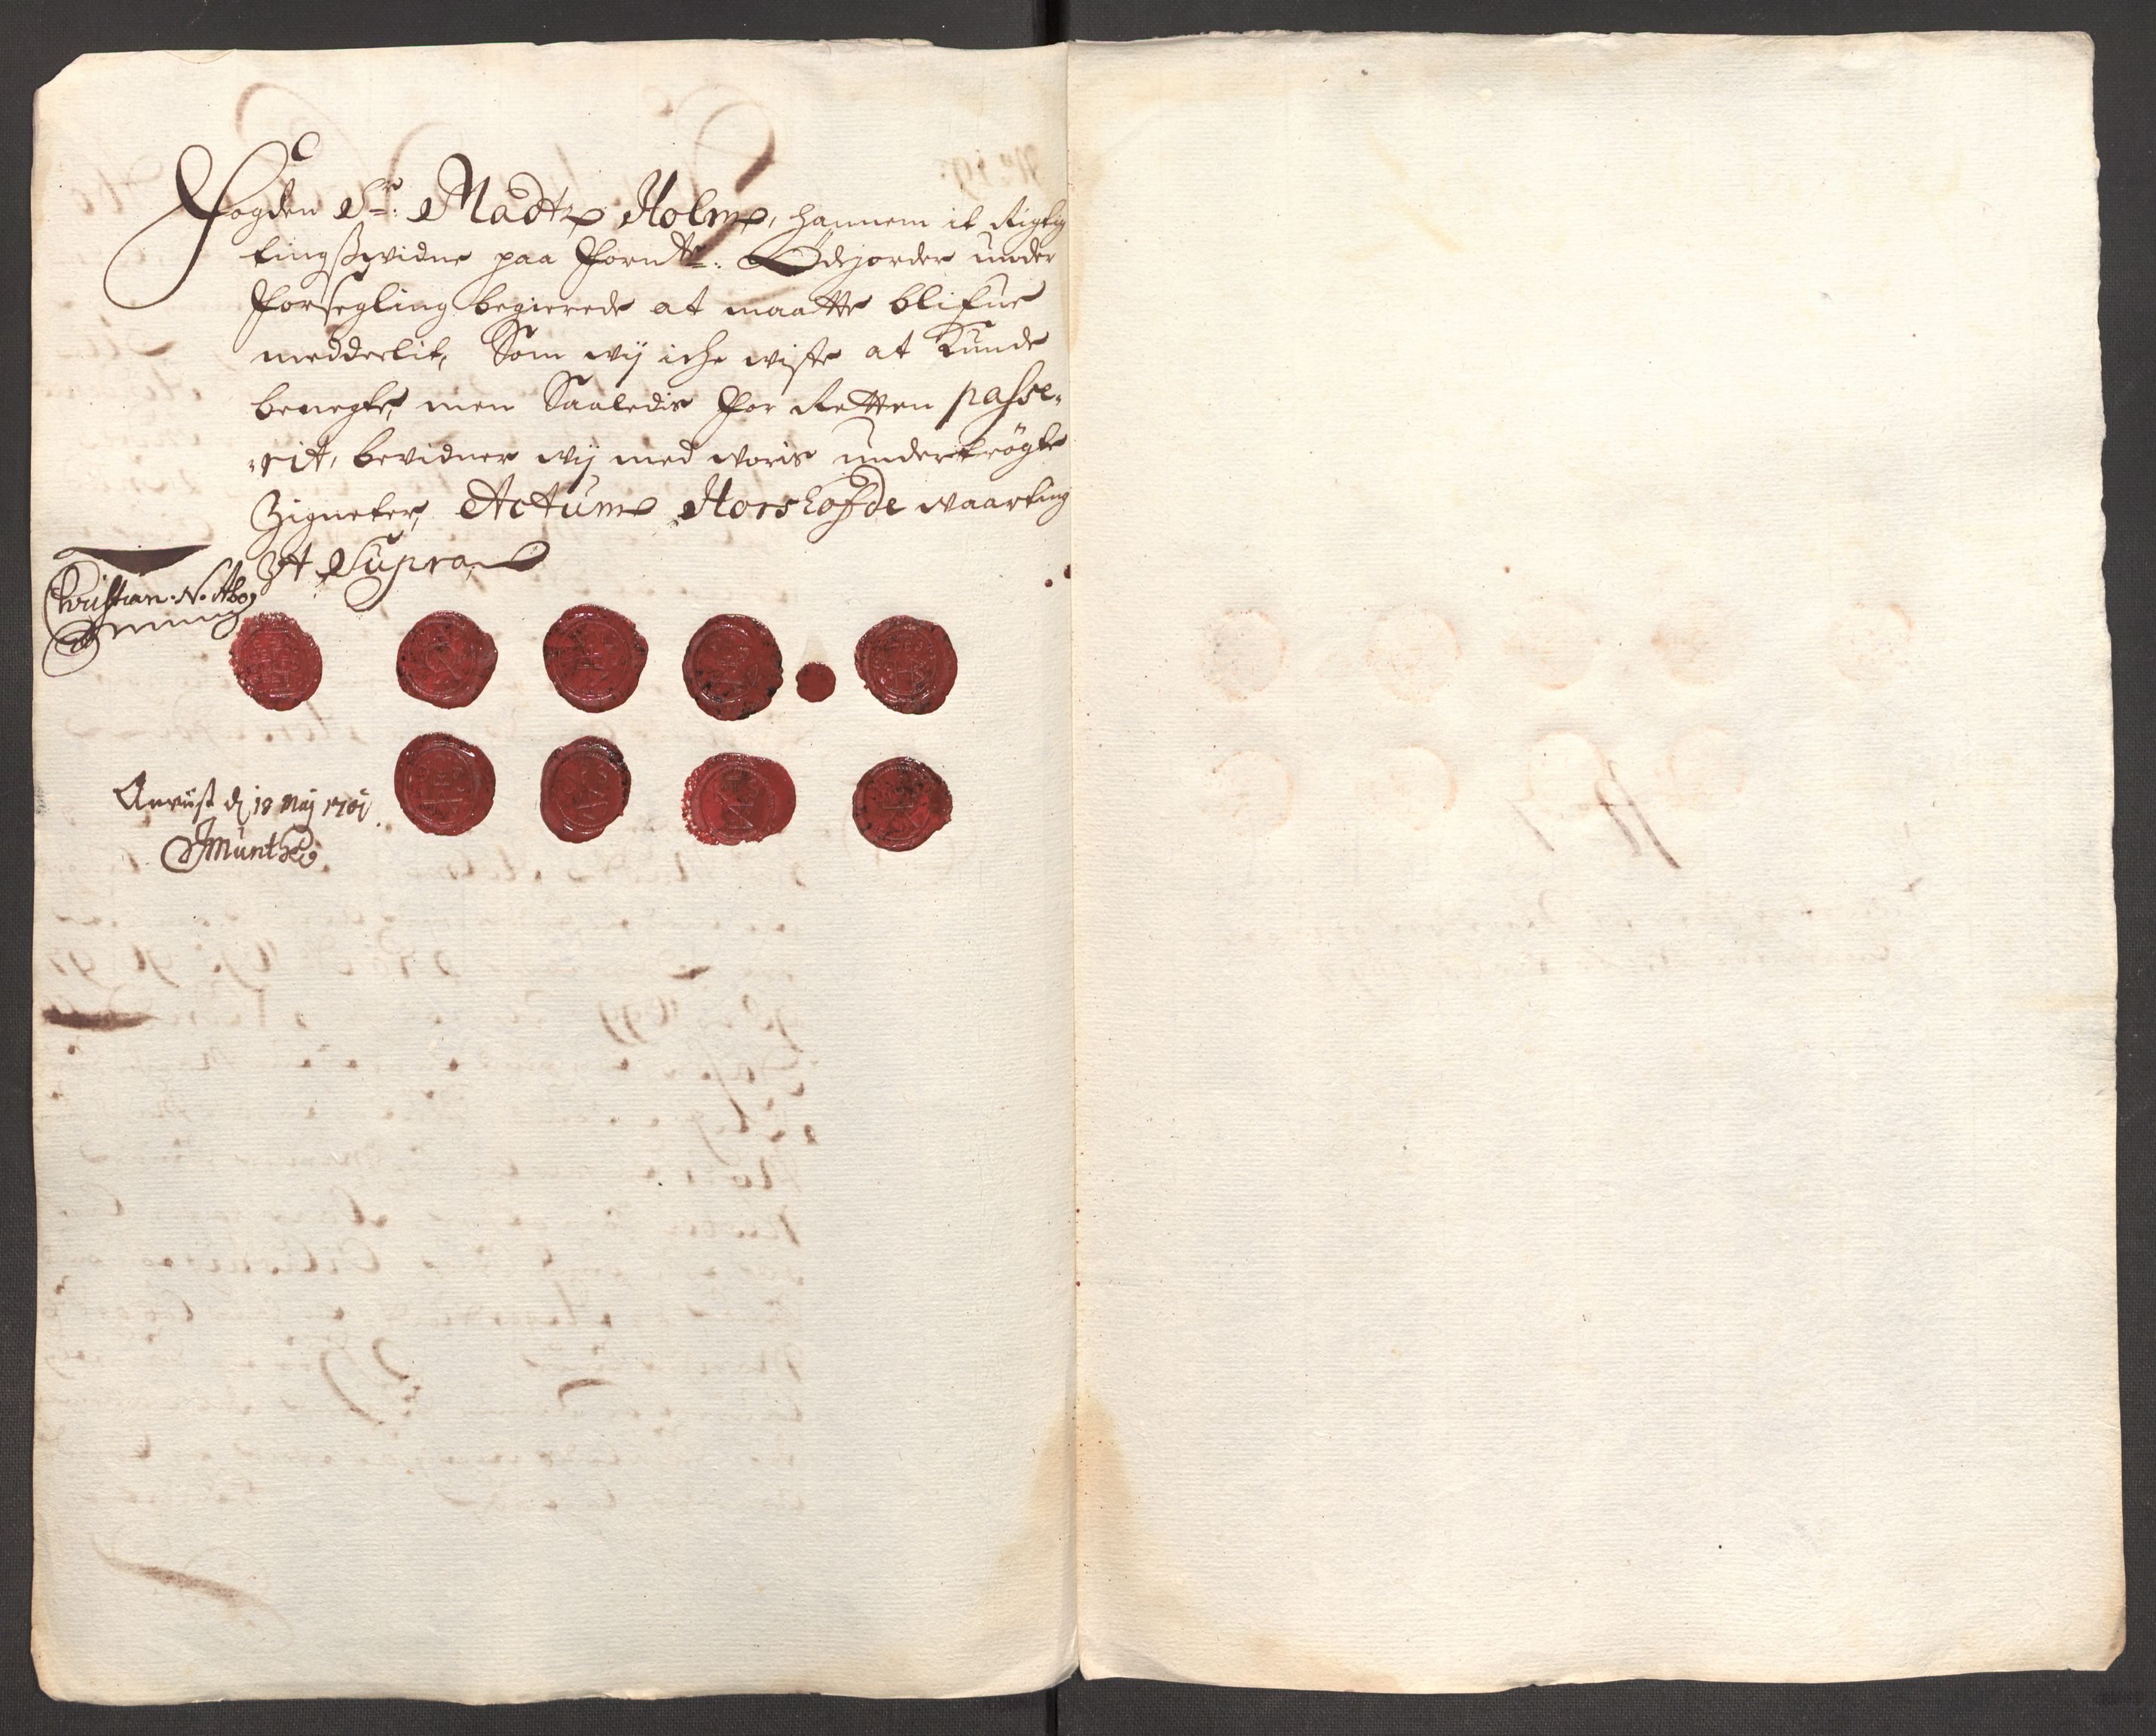 Fogden Sr: Madtz Holm, hannem it Rigtig
tingsswidne paa Fornte: Ødejorder under
Forsegling begierede at maatte blifue
medderlit, Som wij iche wiste at Kunde
benegte, men Saaledis For Retten passe-
-rit, bevidner wij med woris undertrögte
Zigneter, Actum Horshofde waarting
Ut Supra
Christian N.
Anvist d 18 Maij 1701
Munthe